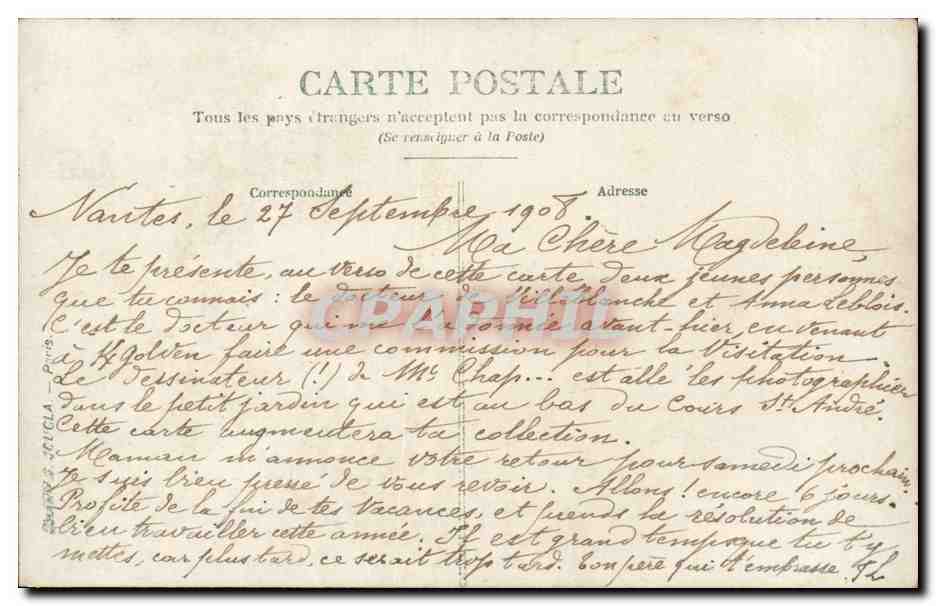 CARTE POSTALE
Tous les pays étrangers n'acceptent pas la correspondance au verso
(Se renseigner à la Poste)
Correspondance
Adresse
Nantes, le 27 Septembre 1908.
Ma Chère Magdeleine,
Je te présente, au verso de cette carte deux jeunes personnes
que tu connais : le docteur de Villeblanche et Anna Leblois.
C'est le docteur qui me l'a donnée avant-hier, en venant
à golven faire une commission pour la Visitation.
Le dessinateur (!) de Mr Chap... est allé les photographier
dans le petit jardin qui est au bas du Cours St André.
Cette carte augmentera ta collection.
Maman m'annonce votre retour pour samedi prochain.
Je suis bien pressé de vous revoir. Allons ! encore 6 jours.
Profite de la fin de tes vacances, et prends la résolution de
bien travailler cette année. Il est grand temps que tu t'y
mettes, car plus tard, ce serait trop tard. Ton père qui t'embrasse.
JOUGLA. — Paris.
CPAPHIL